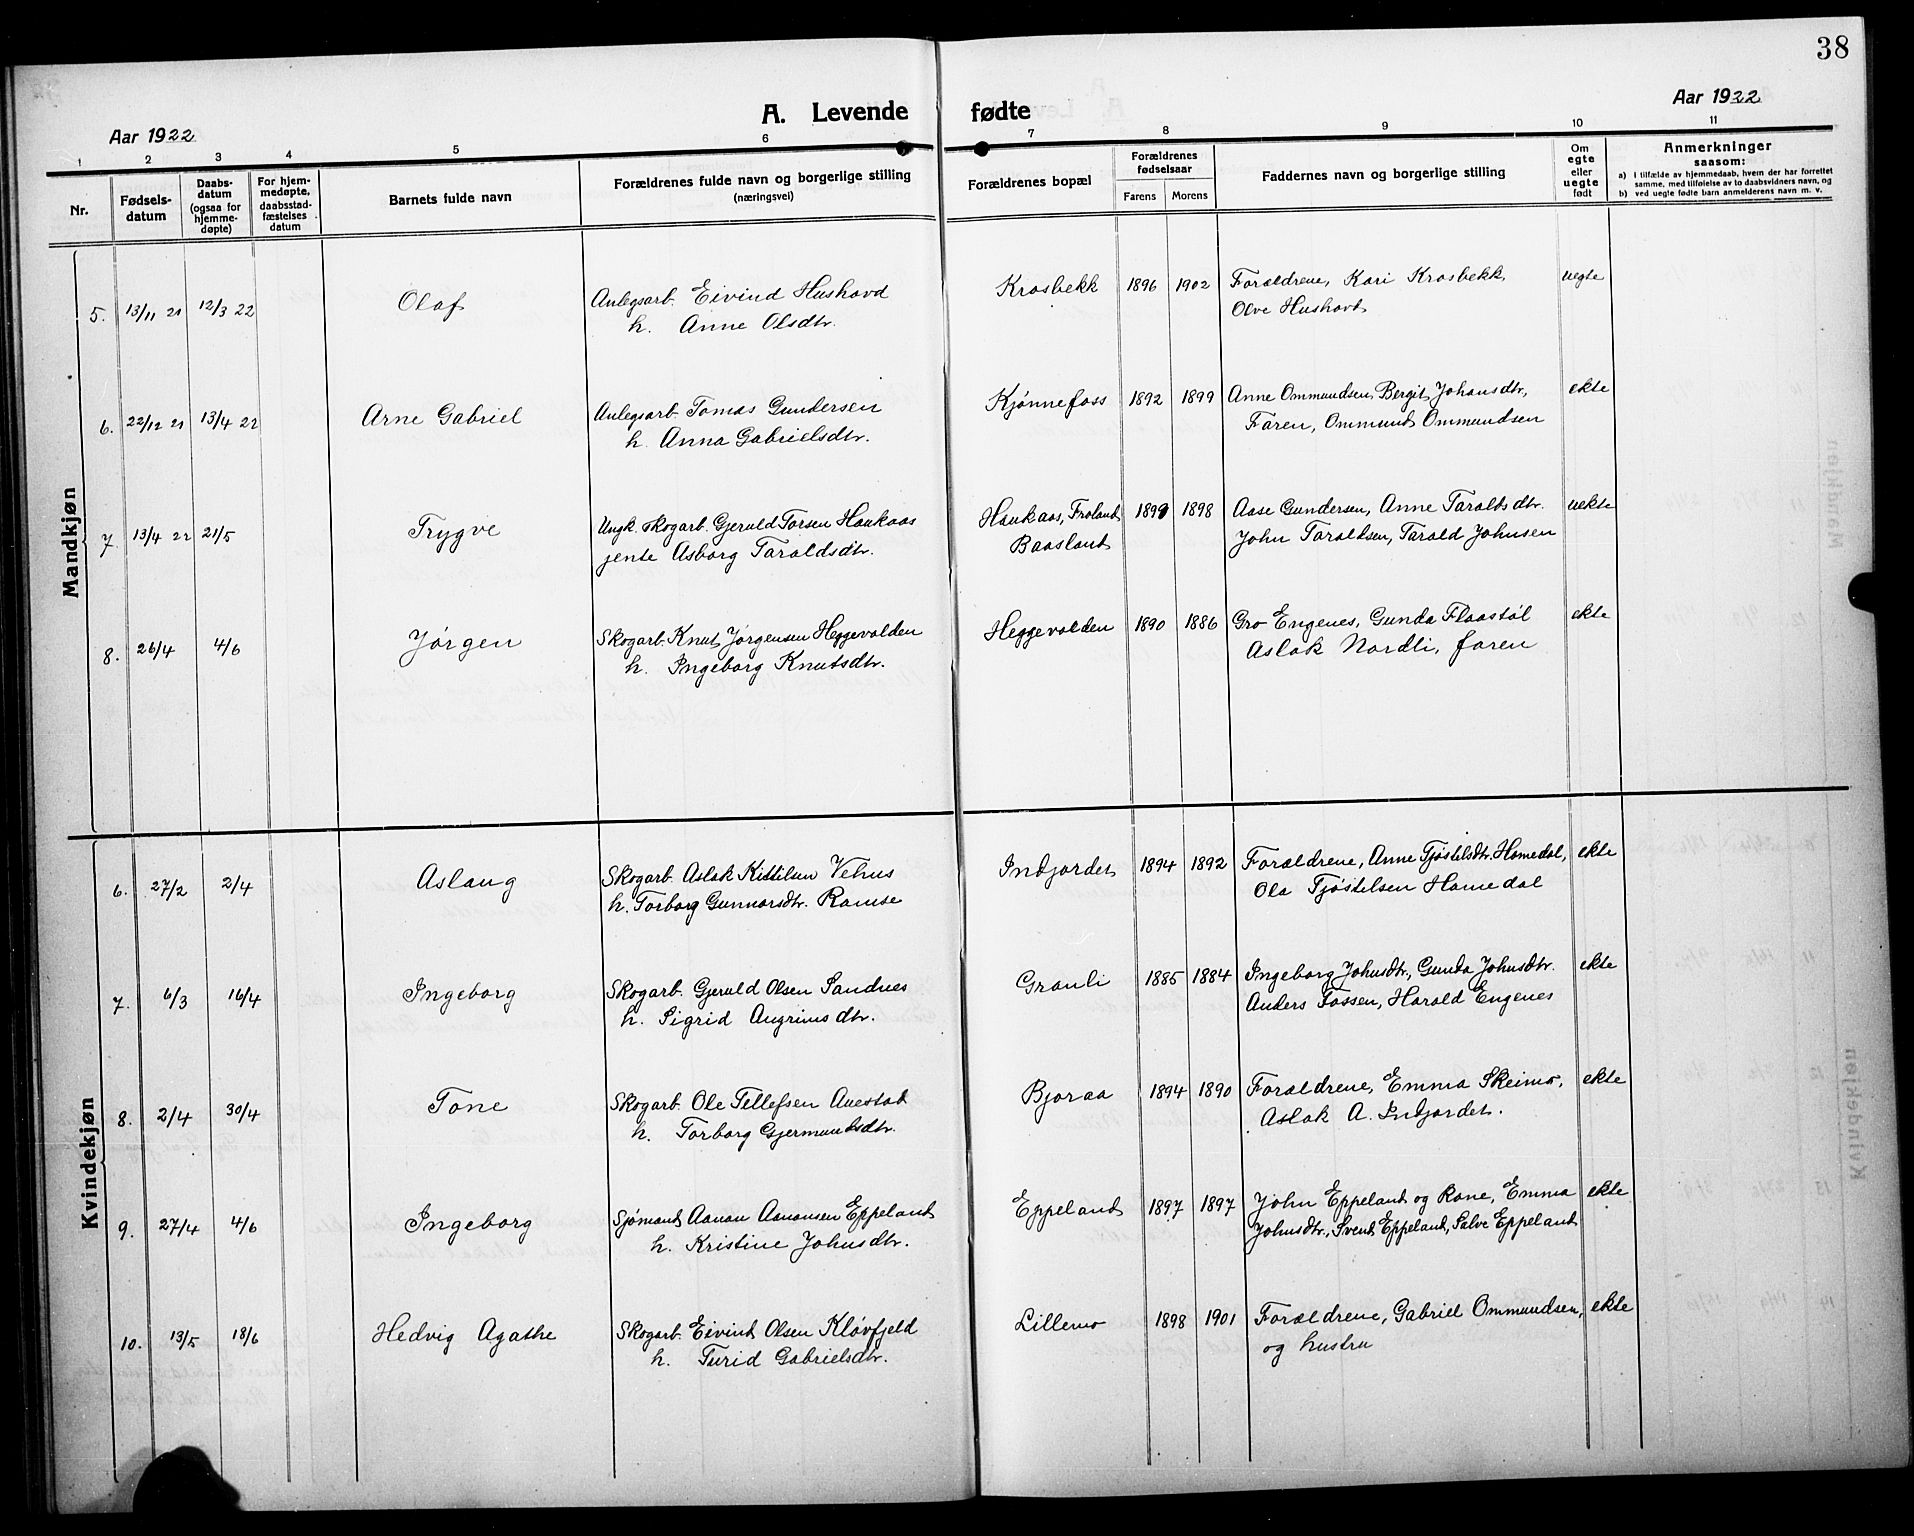 38
A. Levende fødte
Aar 1922
Aar 1922
1 2 3 4 5 6 7 8 9 10 11
Nr.
Fødsels-
datum
Daabs-
datum
(ogsaa for
hjemme-
døpte)
For hjem-
medøpte,
daabsstad-
fæstelses
datum
Barnets fulde navn
Forældrenes fulde navn og borgerlige stilling
(næringsvei)
Forældrenes bopæl
Forældrenes
fødselsaar
Farens Morens
Faddernes navn og borgerlige stilling
Om
egte
eller
uegte
født
Anmerkninger
saasom:
a) i tilfælde av hjemmedaab, hvem der har forrettet
samme, med tilføielse av to daabsvidners navn, og
b) ved uegte fødte barn anmelderens navn m. v.
Mandkjøn
5. 13/11 21 12/3 22 Olaf Anlegsarb. Eivind Hushovd Krosbekk 1896 1902 Foraldrene, Kari Krosbekk uegte
h. Anne Olsdtr. Olve Hushovd
6. 22/12 21 13/4 22 Arne Gabriel Anlegsarb. Tomas Gundersen Kjønnefoss 1892 1899 Anne Ommundsen, Bergit Johansdtr, ekte
h. Anna Gabrielsdtr. Faren, Ommund Ommundsen
7. 13/4 22 21/5 Trygve Ungk. skogarb. Gjeruld Torsen Haukaas Haukaas, Froland 1899 1898 Aase Gundersen, Anne Taraldsdtr. uekte
jente Asborg Taraldsdtr. Baasland John Taraldsen, Tarald Johnsen
8. 26/4 4/6 Jørgen Skogarb. Knut Jørgensen Heggevolden Heggevolden 1890 1886 Gro Engenes, Gunda Flaastøl ekte
h. Ingeborg Knutsdtr. Aslak Nordli, faren
Kvindekjøn
6. 27/2 2/4 Aslaug Skogarb. Aslak Kittilsen Vehus Indjordet 1894 1892 Foraldrene, Anne Tjøstelsdtr. Homedal, ekte
h. Torborg Gunnarsdtr. Ramse Ola Tjøstelsen Homedal
7. 6/3 16/4 Ingeborg Skogarb. Gjeruld Olsen Sandnes Granli 1885 1884 Ingeborg Johnsdtr., Gunda Johnsdtr. ekte
h. Sigrid Angrimsdtr. Anders Fossen, Harald Engenes
8. 2/4 30/4 Tone Skogarb. Ole Tellefsen Auestad Bjoraa 1894 1890 Foraldrene, Emma Skeimo, ekte
h. Torborg Gjermundsdtr. Aslak A. Indjordet.
9. 27/4 4/6 Ingeborg Sjømand Aanon Aanonsen Eppeland Eppeland 1897 1897 John Eppeland og Kone, Emma ekte
h. Kristine Johnsdtr. Johnsdtr., Svend Eppeland, Salve Eppeland
10. 13/5 18/6 Hedvig Agathe Skogarb. Eivind Olsen Kløvfjeld Lillemo 1898 1901 Foraldrene, Gabriel Ommundsen, ekte
h. Turid Gabrielsdtr. og hustru